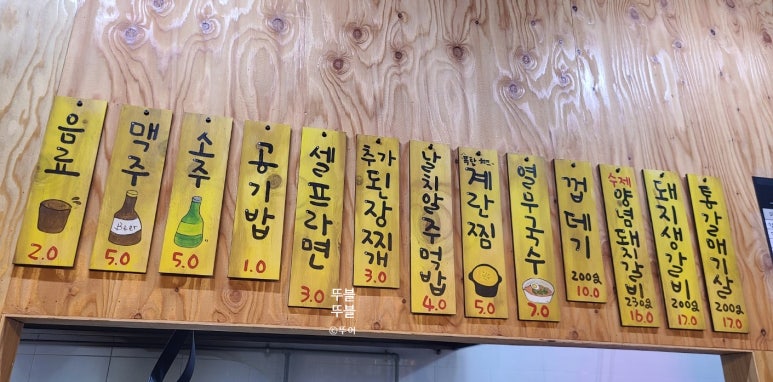 음료
2.0
맥주
Beer
5.0
소주
5.0
공기밥
1.0
셀프라면
3.0
추가
된장찌개
3.0
날치알주먹밥
4.0
계란찜
5.0
열무국수
7.0
껍데기
200g
10.0
수제
양념돼지갈비
230g
16.0
돼지생갈비
200g
17.0
통갈매기살
200g
17.0
뚜블
뚜블
©뚜여